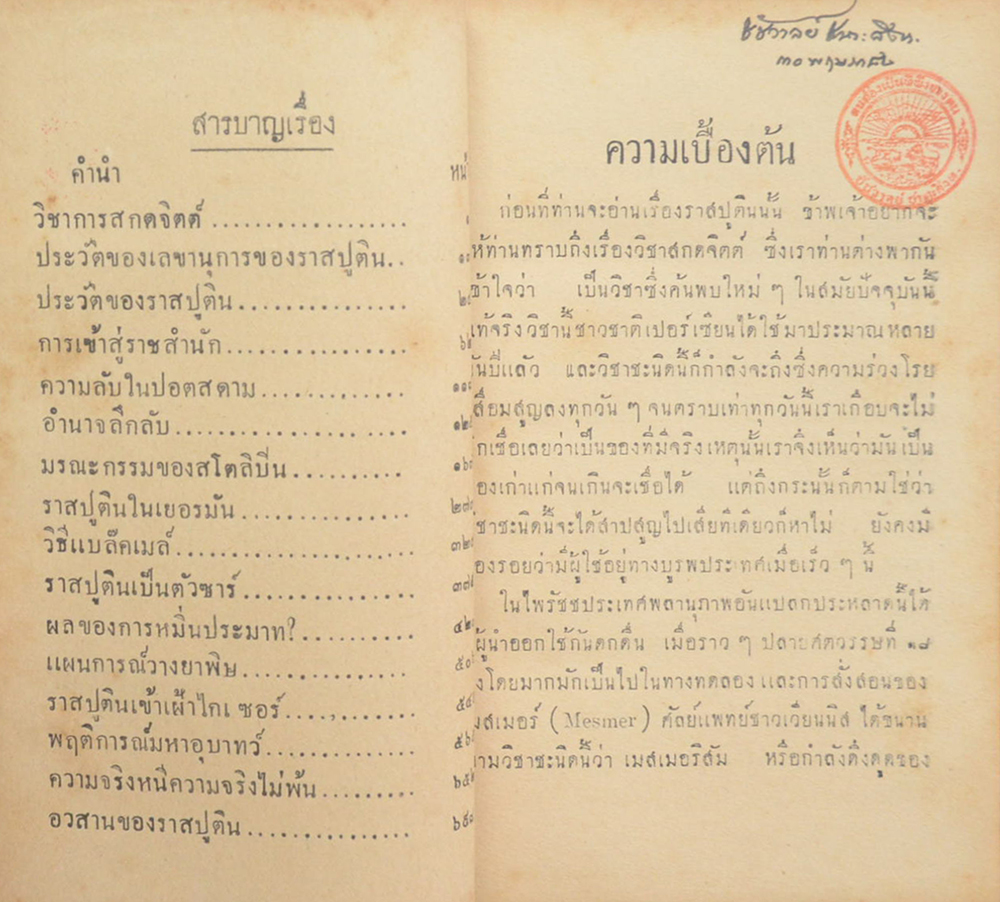 สารบาญเรื่อง
คำนำ
วิชาการสกดจิตต์ .................
ประวัติของเลขานุการของราสปูติน..
ประวัติของราสปูติน................
การเข้าสู่ราชสำนัก................
ความลับในปอตสดาม.............
อำนาจลึกลับ......................
มรณะกรรมของสโตลิบี่น..........
ราสปูตินในเยอรมัน................
วิธีแบล๊คเมล์......................
ราสปูตินเป็นตัวซาร์...............
ผลของการหมิ่นประมาท?..........
แผนการณ์วางยาพิษ...............
ราสปูตินเข้าเฝ้าไกเซอร์...........
พฤติการณ์มหาอุบาทว์.............
ความจริงหนีความจริงไม่พ้น.........
อวสานของราสปูติน...............
ความเบื้องต้น
ก่อนที่ท่านจะอ่านเรื่องราสปูตินนั้น ข้าพเจ้าอยากจะ
ห้ท่านทราบถึงเรื่องวิชาสกดจิตต์ ซึ่งเราท่านต่างพากัน
ข้าใจว่า เป็นวิชาซึ่งค้นพบใหม่ ๆ ในสมัยปัจจุบันนี้
ท้จริงวิชานี้ชาวชาติเปอร์เซียนได้ใช้มาประมาณหลาย
ันปีแล้ว และวิชาชะนิดนี้ก็กำลังจะถึงซึ่งความร่วงโรย
สื่อมสูญลงทุกวัน ๆ จนตราบเท่าทุกวันนี้เราเกือบจะไม่
ักเชื่อเลยว่าเป็นของที่มีจริง เหตุนั้นเราจึ่งเห็นว่ามันเป็น
องเก่าแก่จนเกินจะเชื่อได้ แต่ถึงกระนั้นก็ตามใช่ว่า
ชาชะนิดนี้จะได้สาปสูญไปเสียทีเดียวก็หาไม่ ยังคงมี
องรอยว่ามีผู้ใช้อยู่ทางบูรพประเทศเมื่อเร็ว ๆ นี้
ในไพรัชชประเทศพลานุภาพอันแปลกประหลาดนี้ได้
ผู้นำออกใช้กันดกดื่น เมื่อราว ๆ ปลายศตวรรษที่ ๑๘
งโดยมากมักเป็นไปในทางทดลอง และการสั่งสอนของ
มสเมอร์ (Mesmer) ศัลย์แพทย์ชาวเวียนนิส ได้ขนาน
ามวิชาชะนิดนี้ว่า เมสเมอริสัม หรือกำลังดึงดูดของ